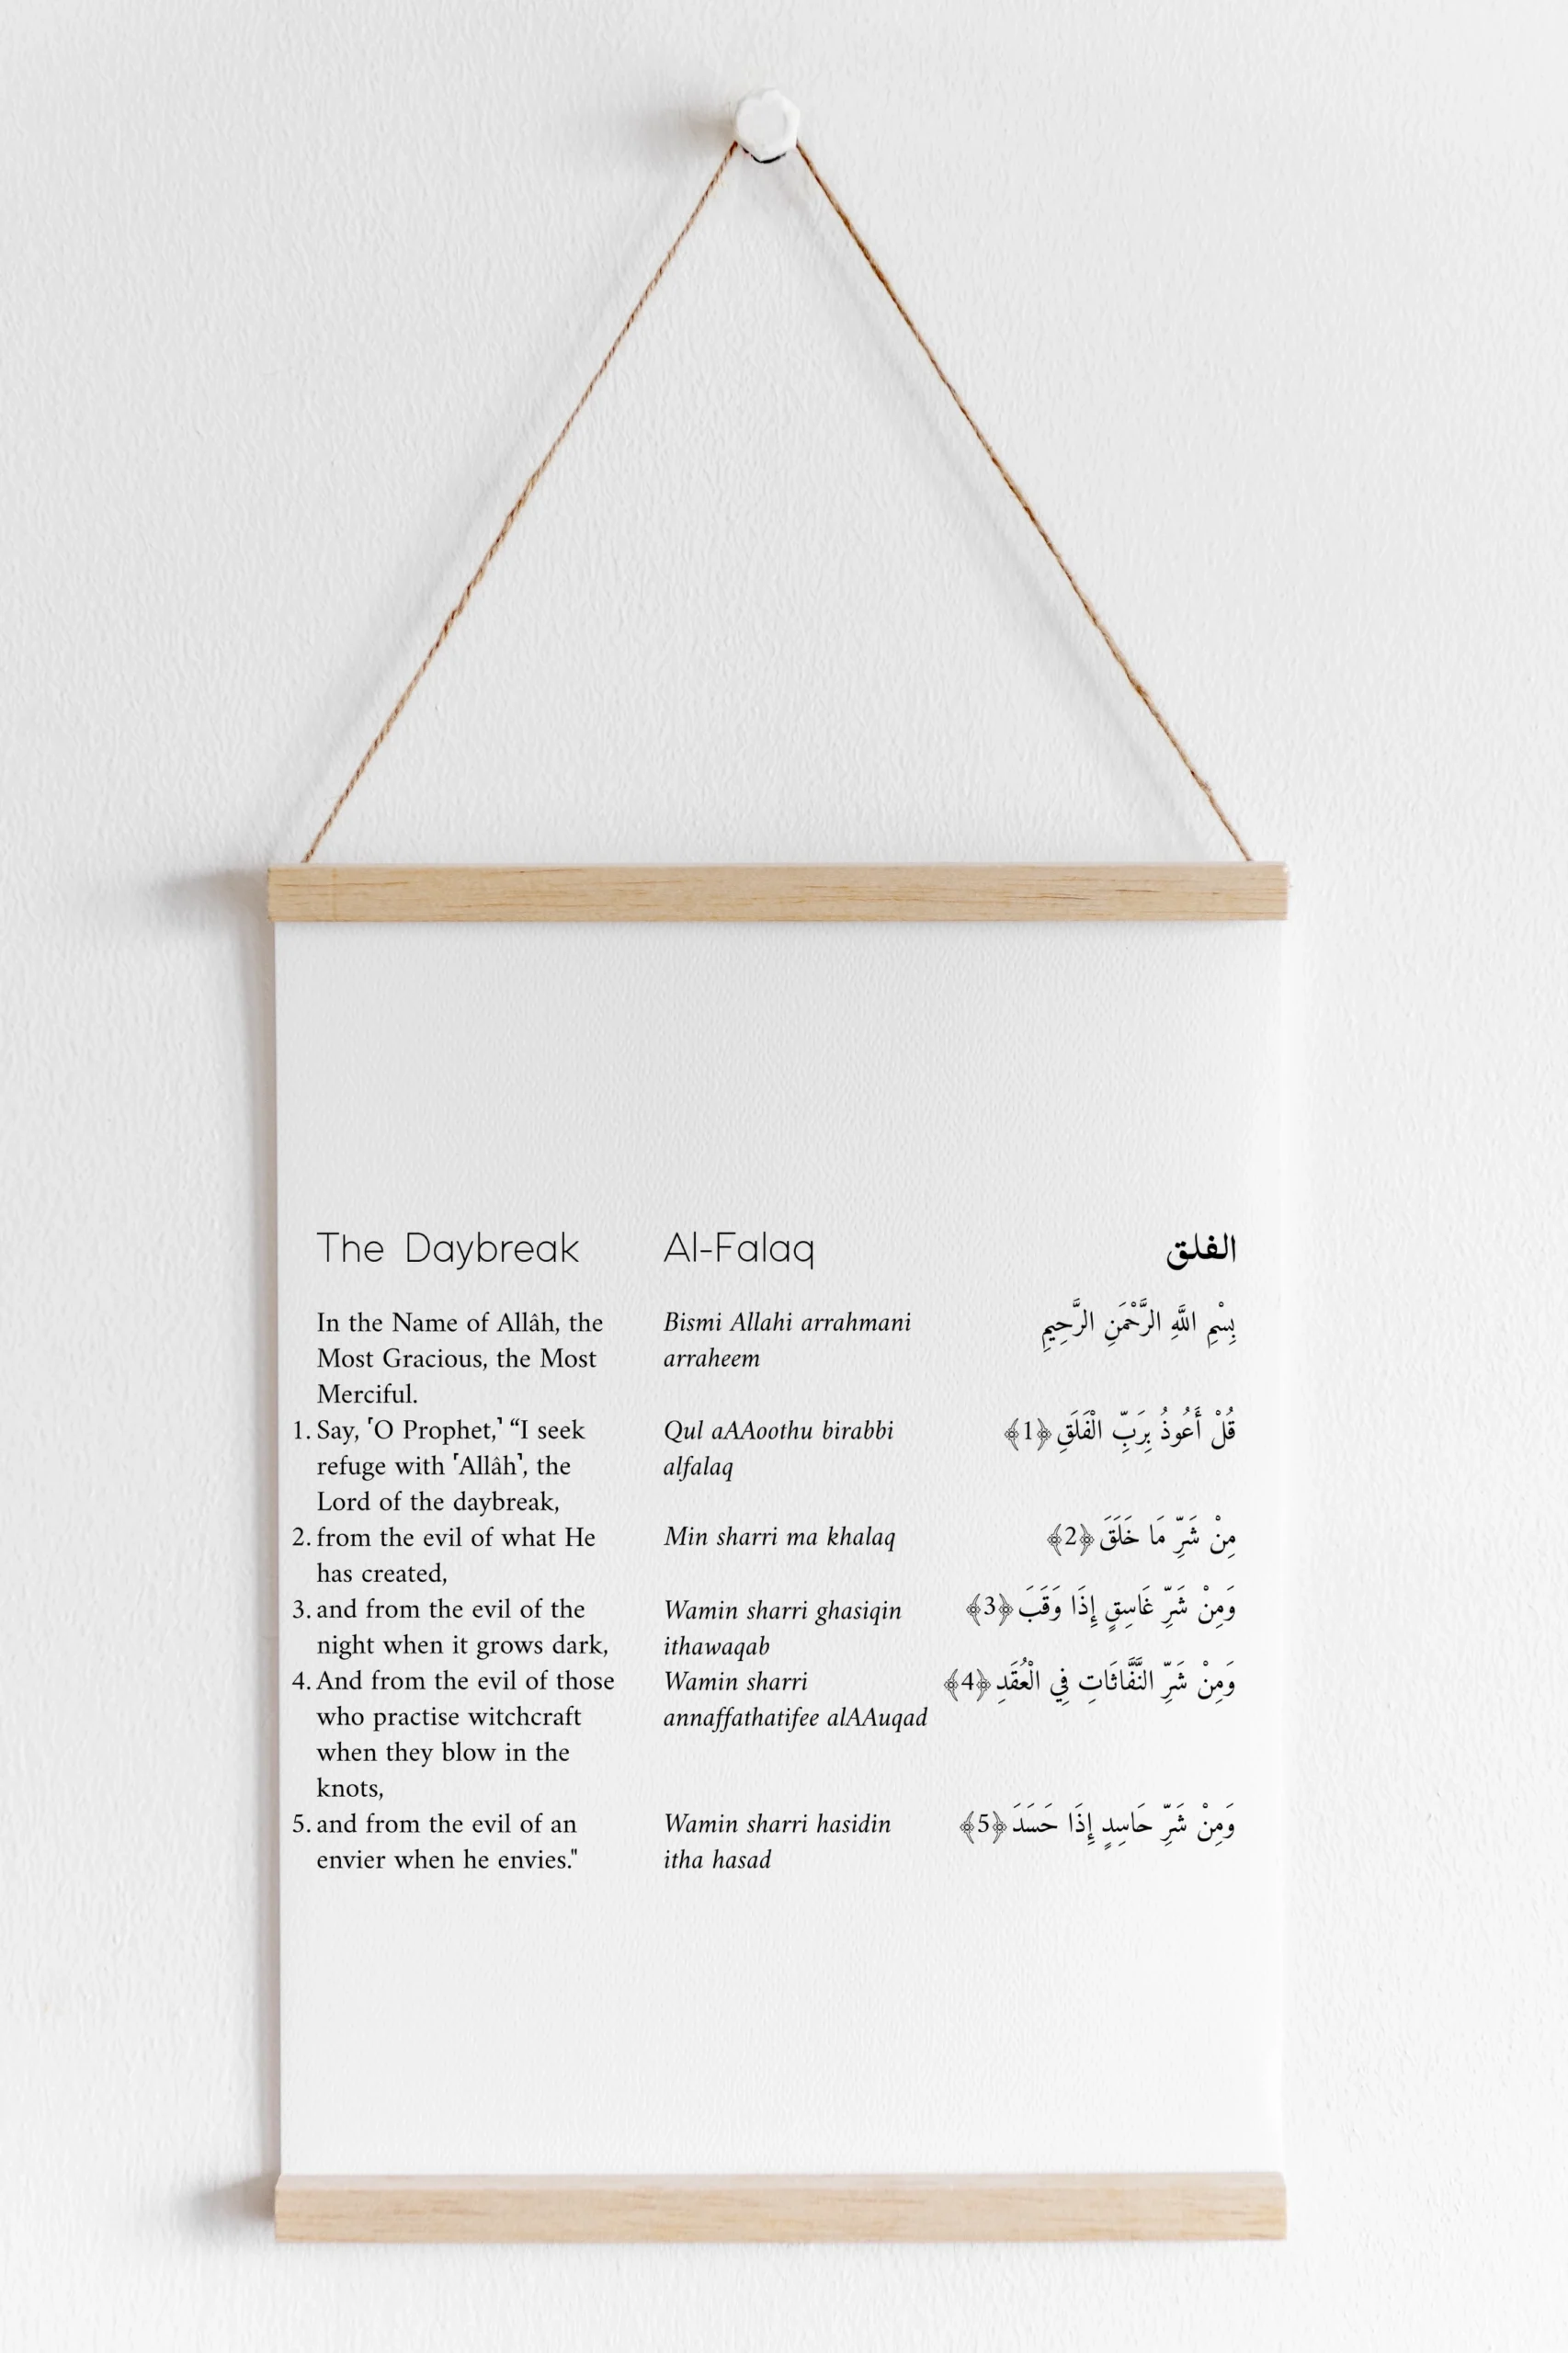 The Daybreak
In the Name of Allâh, the
Most Gracious, the Most
Merciful.
1. Say, ⸢O Prophet,⸣ “I seek
refuge with ⸢Allâh⸣, the
Lord of the daybreak,
2. from the evil of what He
has created,
3. and from the evil of the
night when it grows dark,
4. And from the evil of those
who practise witchcraft
when they blow in the
knots,
5. and from the evil of an
envier when he envies."
Al-Falaq
Bismi Allahi arrahmani
arraheem
Qul aAAoothu birabbi
alfalaq
Min sharri ma khalaq
Wamin sharri ghasiqin
ithawaqab
Wamin sharri
annaffathatifee alAAuqad
Wamin sharri hasidin
itha hasad
الفلق
بِسْمِ اللَّهِ الرَّحْمَنِ الرَّحِيمِ
قُلْ أَعُوذُ بِرَبِّ الْفَلَقِ ﴿1﴾
مِنْ شَرِّ مَا خَلَقَ ﴿2﴾
وَمِنْ شَرِّ غَاسِقٍ إِذَا وَقَبَ ﴿3﴾
وَمِنْ شَرِّ النَّفَّاثَاتِ فِي الْعُقَدِ ﴿4﴾
وَمِنْ شَرِّ حَاسِدٍ إِذَا حَسَدَ ﴿5﴾